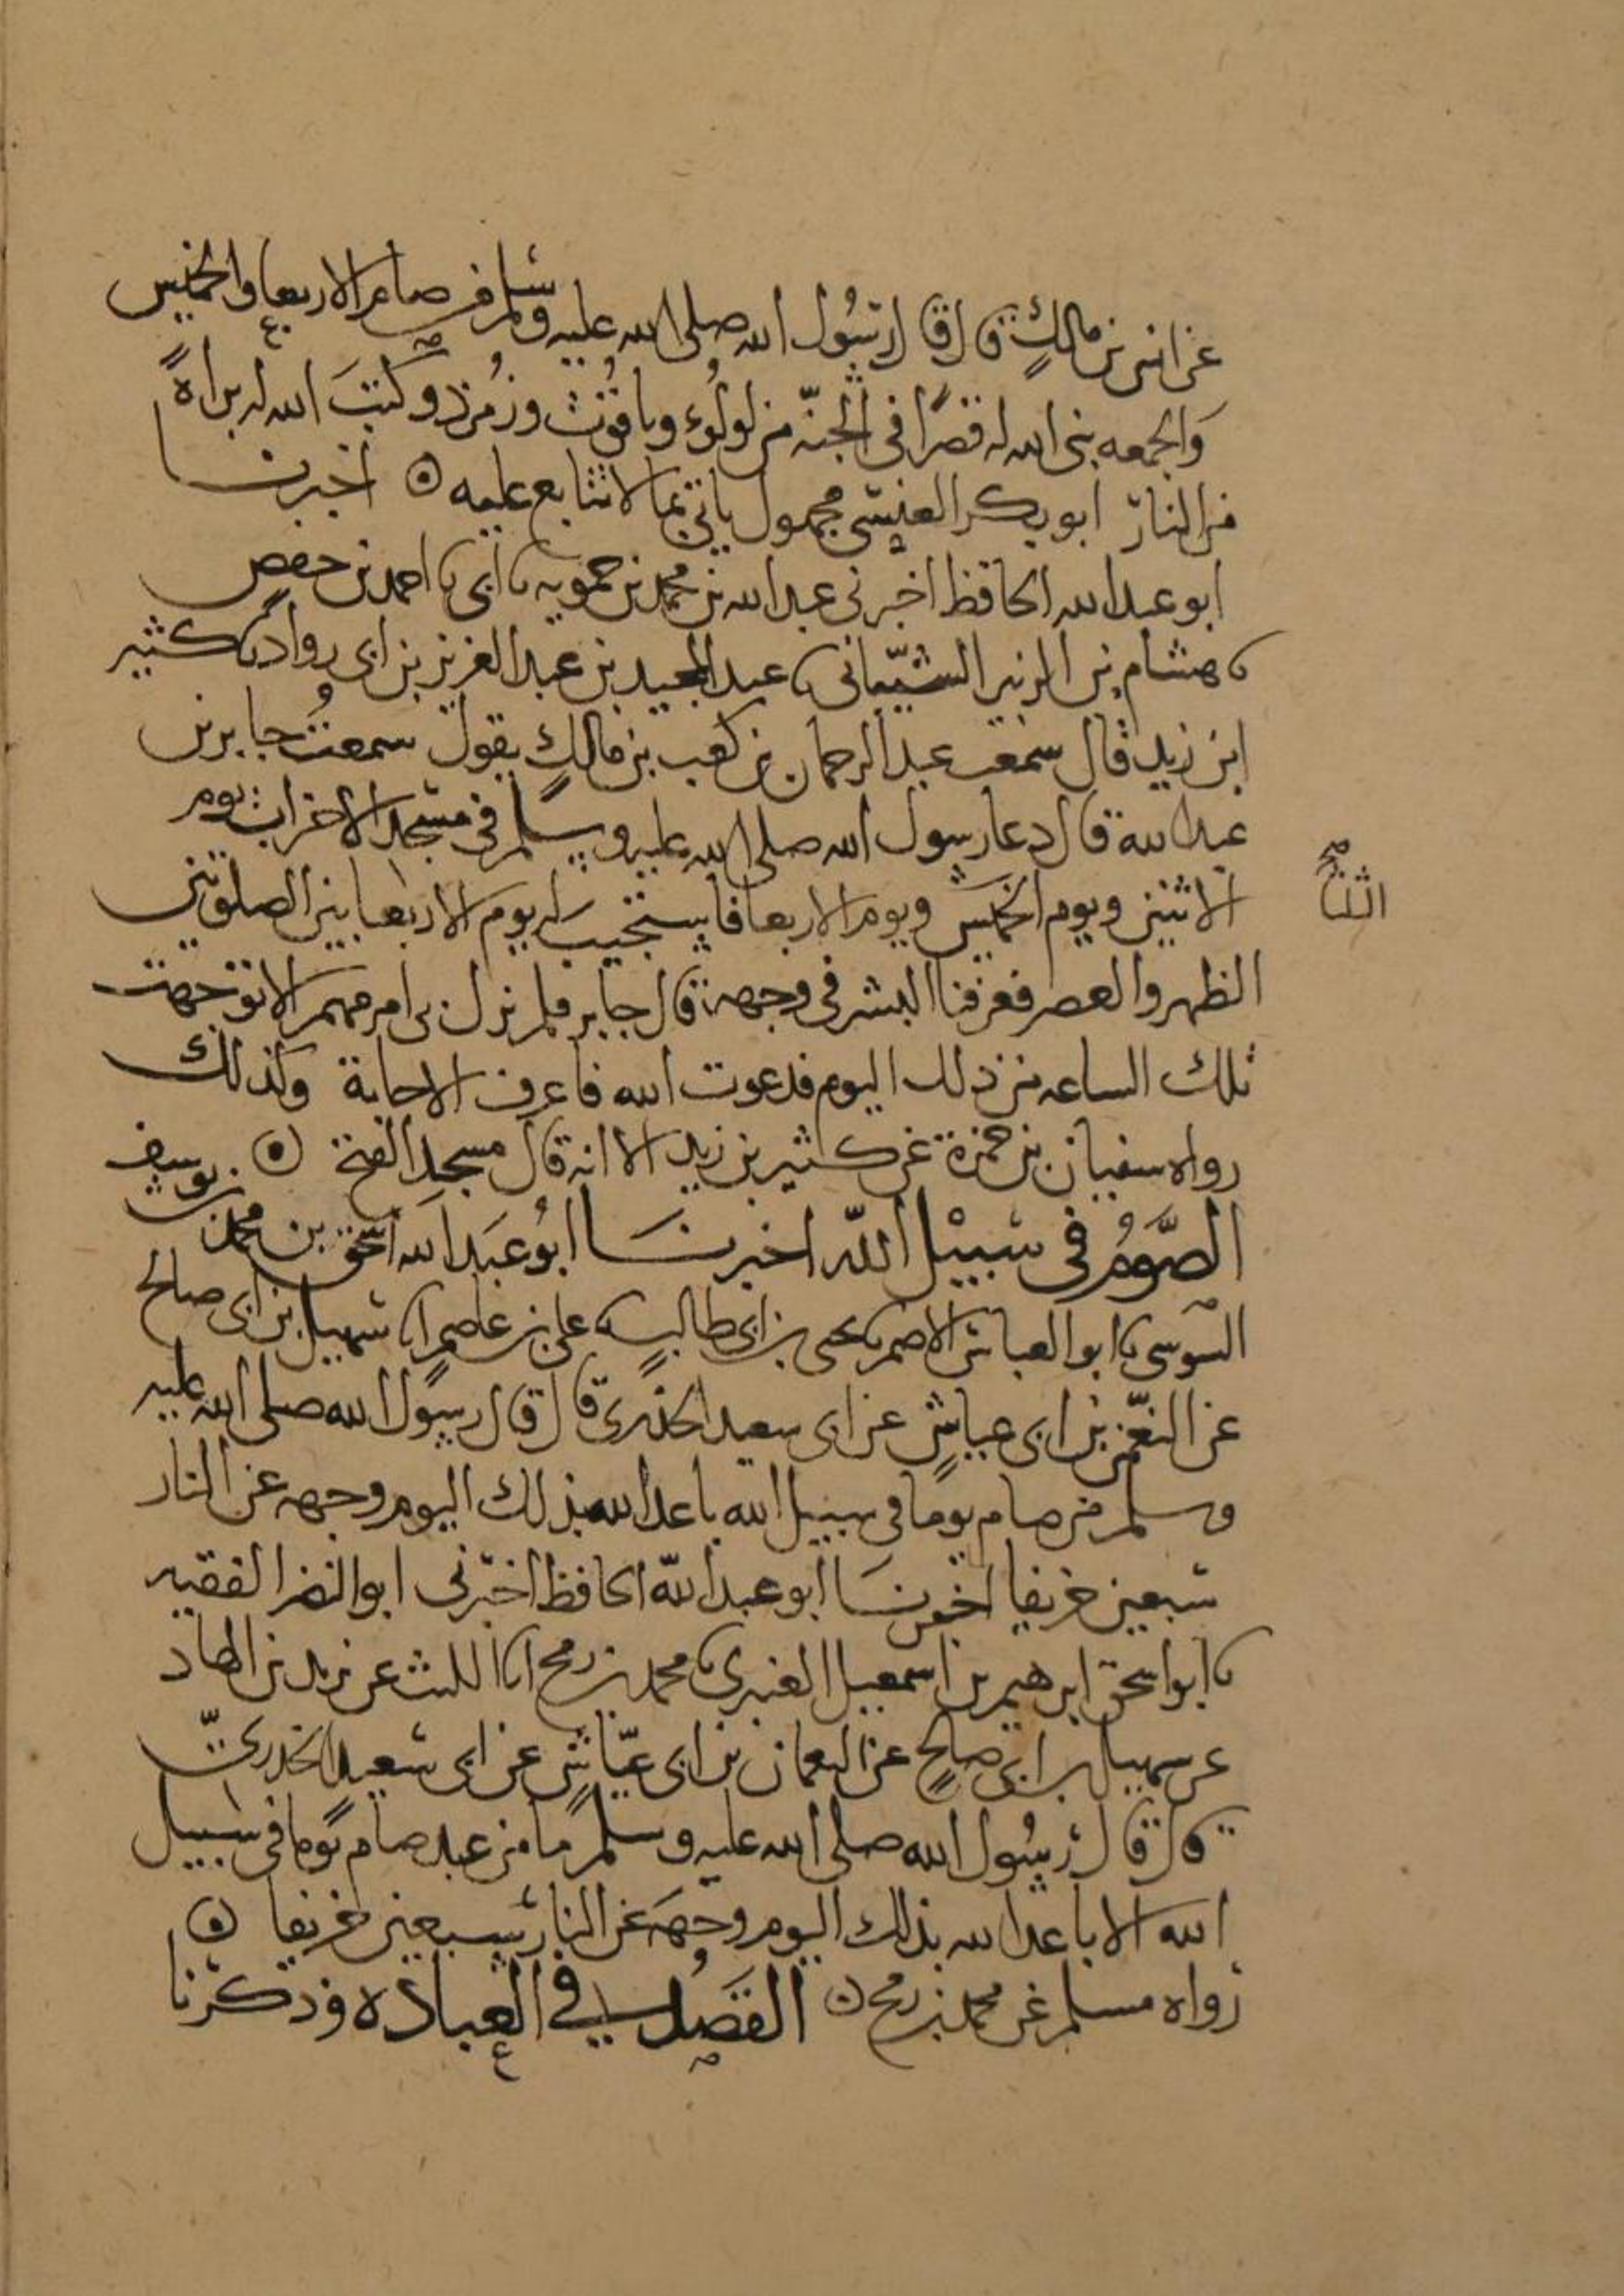 عن انس بن مالكٍ قال قال رسُول الله صلى الله عليه وسلم من صام الاربعا والخميس
وَالجمعه بنى الله له قصرًا في الجنّه من لولُوءٍ وياقُوتٍ وزُمرّد وكتبَ الله له براةً
من النار ابو بكر العنسي مجهول ياتي بما لا يتابع عليه ٥ اخبرنا
ابو عبد الله الحافظ اخبرني عبد الله بن محمد بن حمويه نا ابي نا احمد بن حفص
نا هشام بن الشيباني نا عبد المجيد بن عبد العزيز بن ابي رواد نا كثير
ابن زيد قال سمعت عبد الرحمان بن كعب بن مالكٍ يقول سمعتُ جابر بن
عبد الله قال دعا رسول الله صلى الله عليه وسلم في مسجد الاحزاب يوم
الاثنين ويوم الخميس ويوم الاربعا فاستجيب له يوم الاربعا بين الصلوتين
الثلثا صح
الظهر والعصر فعرفنا البشر في وجهه قال جابر فلم ينزل بى امر مهم الا توجهت
تلك الساعه من ذلك اليوم فدعوت الله فاعرف الاجابة وكذلك
رواه سفيان بن حمزة عن كثير بن زيد الا انه قال مسجد الفتح ٥
الصَّوْمُ في سَبيْل اللّه اخبرنا ابُو عَبد الله اسحق بن محمد بن يوسف
السوسي نا ابو العباس الاصم نا يحيى بن ابي طالب نا علي بن عاصم انا سهيل بن ابي صالح
عن النعمن بن ابي عياشٍ عن ابي سعيد الخدري قال قال رسول الله صلى الله عليه
وسلم من صام يومًا في سبيل الله باعد الله بذلك اليوم وجهه عن النار
سبعين خريفا اخبرنا ابو عبد اللّه الحافظ اخبرني ابو النضر الفقيه
نا ابو اسحق ابرهيم بن اسمعيل العنبري نا محمد بن رمح انا الليث عن يزيد بن الهاد
عن سهيل بن ابي صالحٍ عن النعمان بن ابي عيّاشٍ عن ابي سعيد الخدريّ
قال قال رسُول الله صلى الله عليه وسلم ما من عبد صام يومًا في سبيل
الله الا باعد الله بذلك اليوم وجههَ عن النار سبعين خريفا ٥
رواه مسلم عن محمد بن رمح ٥ القصْدُ في العبادَه وذكرنا